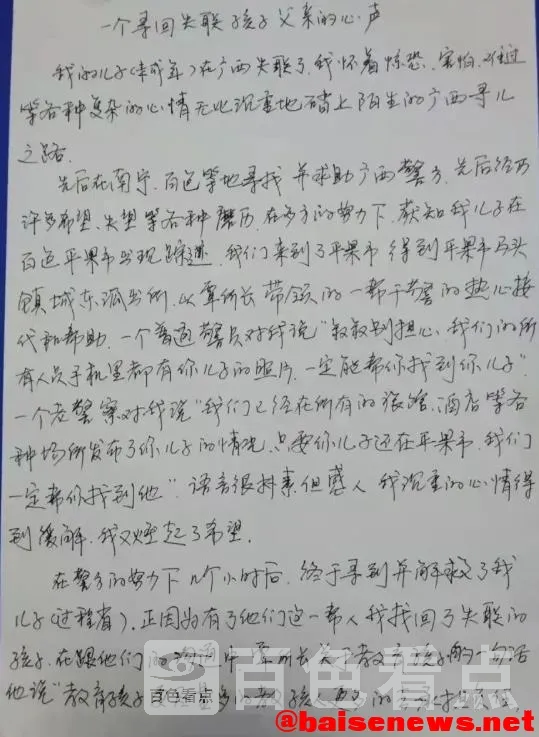 一个寻回失联孩子父亲的心声
我的儿子(未成年)在广西失联了,我怀着惊恐、害怕、难过
等各种复杂的心情无比沉重地踏上陌生的广西寻儿
之路.
先后在南宁、百色等地寻找并求助广西警方,先后经历
许多希望、失望等各种磨历,在多方的努力下,获知我儿子在
百色平果市出现踪迹,我们来到了平果市得到平果市马头
镇城东派出所,以覃所长带领的一帮干警的热心接
代和帮助.一个普通警员对我说"叔叔别担心,我们的所
有人员手机里都有你儿子的照片,一定能帮你找到你儿子"
一个老警察对我说"我们已经在所有的旅馆、酒店等各
种场所发布了你儿子的情况,只要你儿子还在平果市,我们
一定帮你找到他"语言很朴素但感人,我沉重的心情得
到缓解,我又燃起了希望.
在警方的努力下几个小时后,终于寻到并解救了我
儿子(过程省).正因为有了他们这一帮人我找回了失联的
孩子.在跟他们的 中覃所长关于教育孩子的一句话
他说"教育孩子
百色看点
百色看点
@baisenews.net